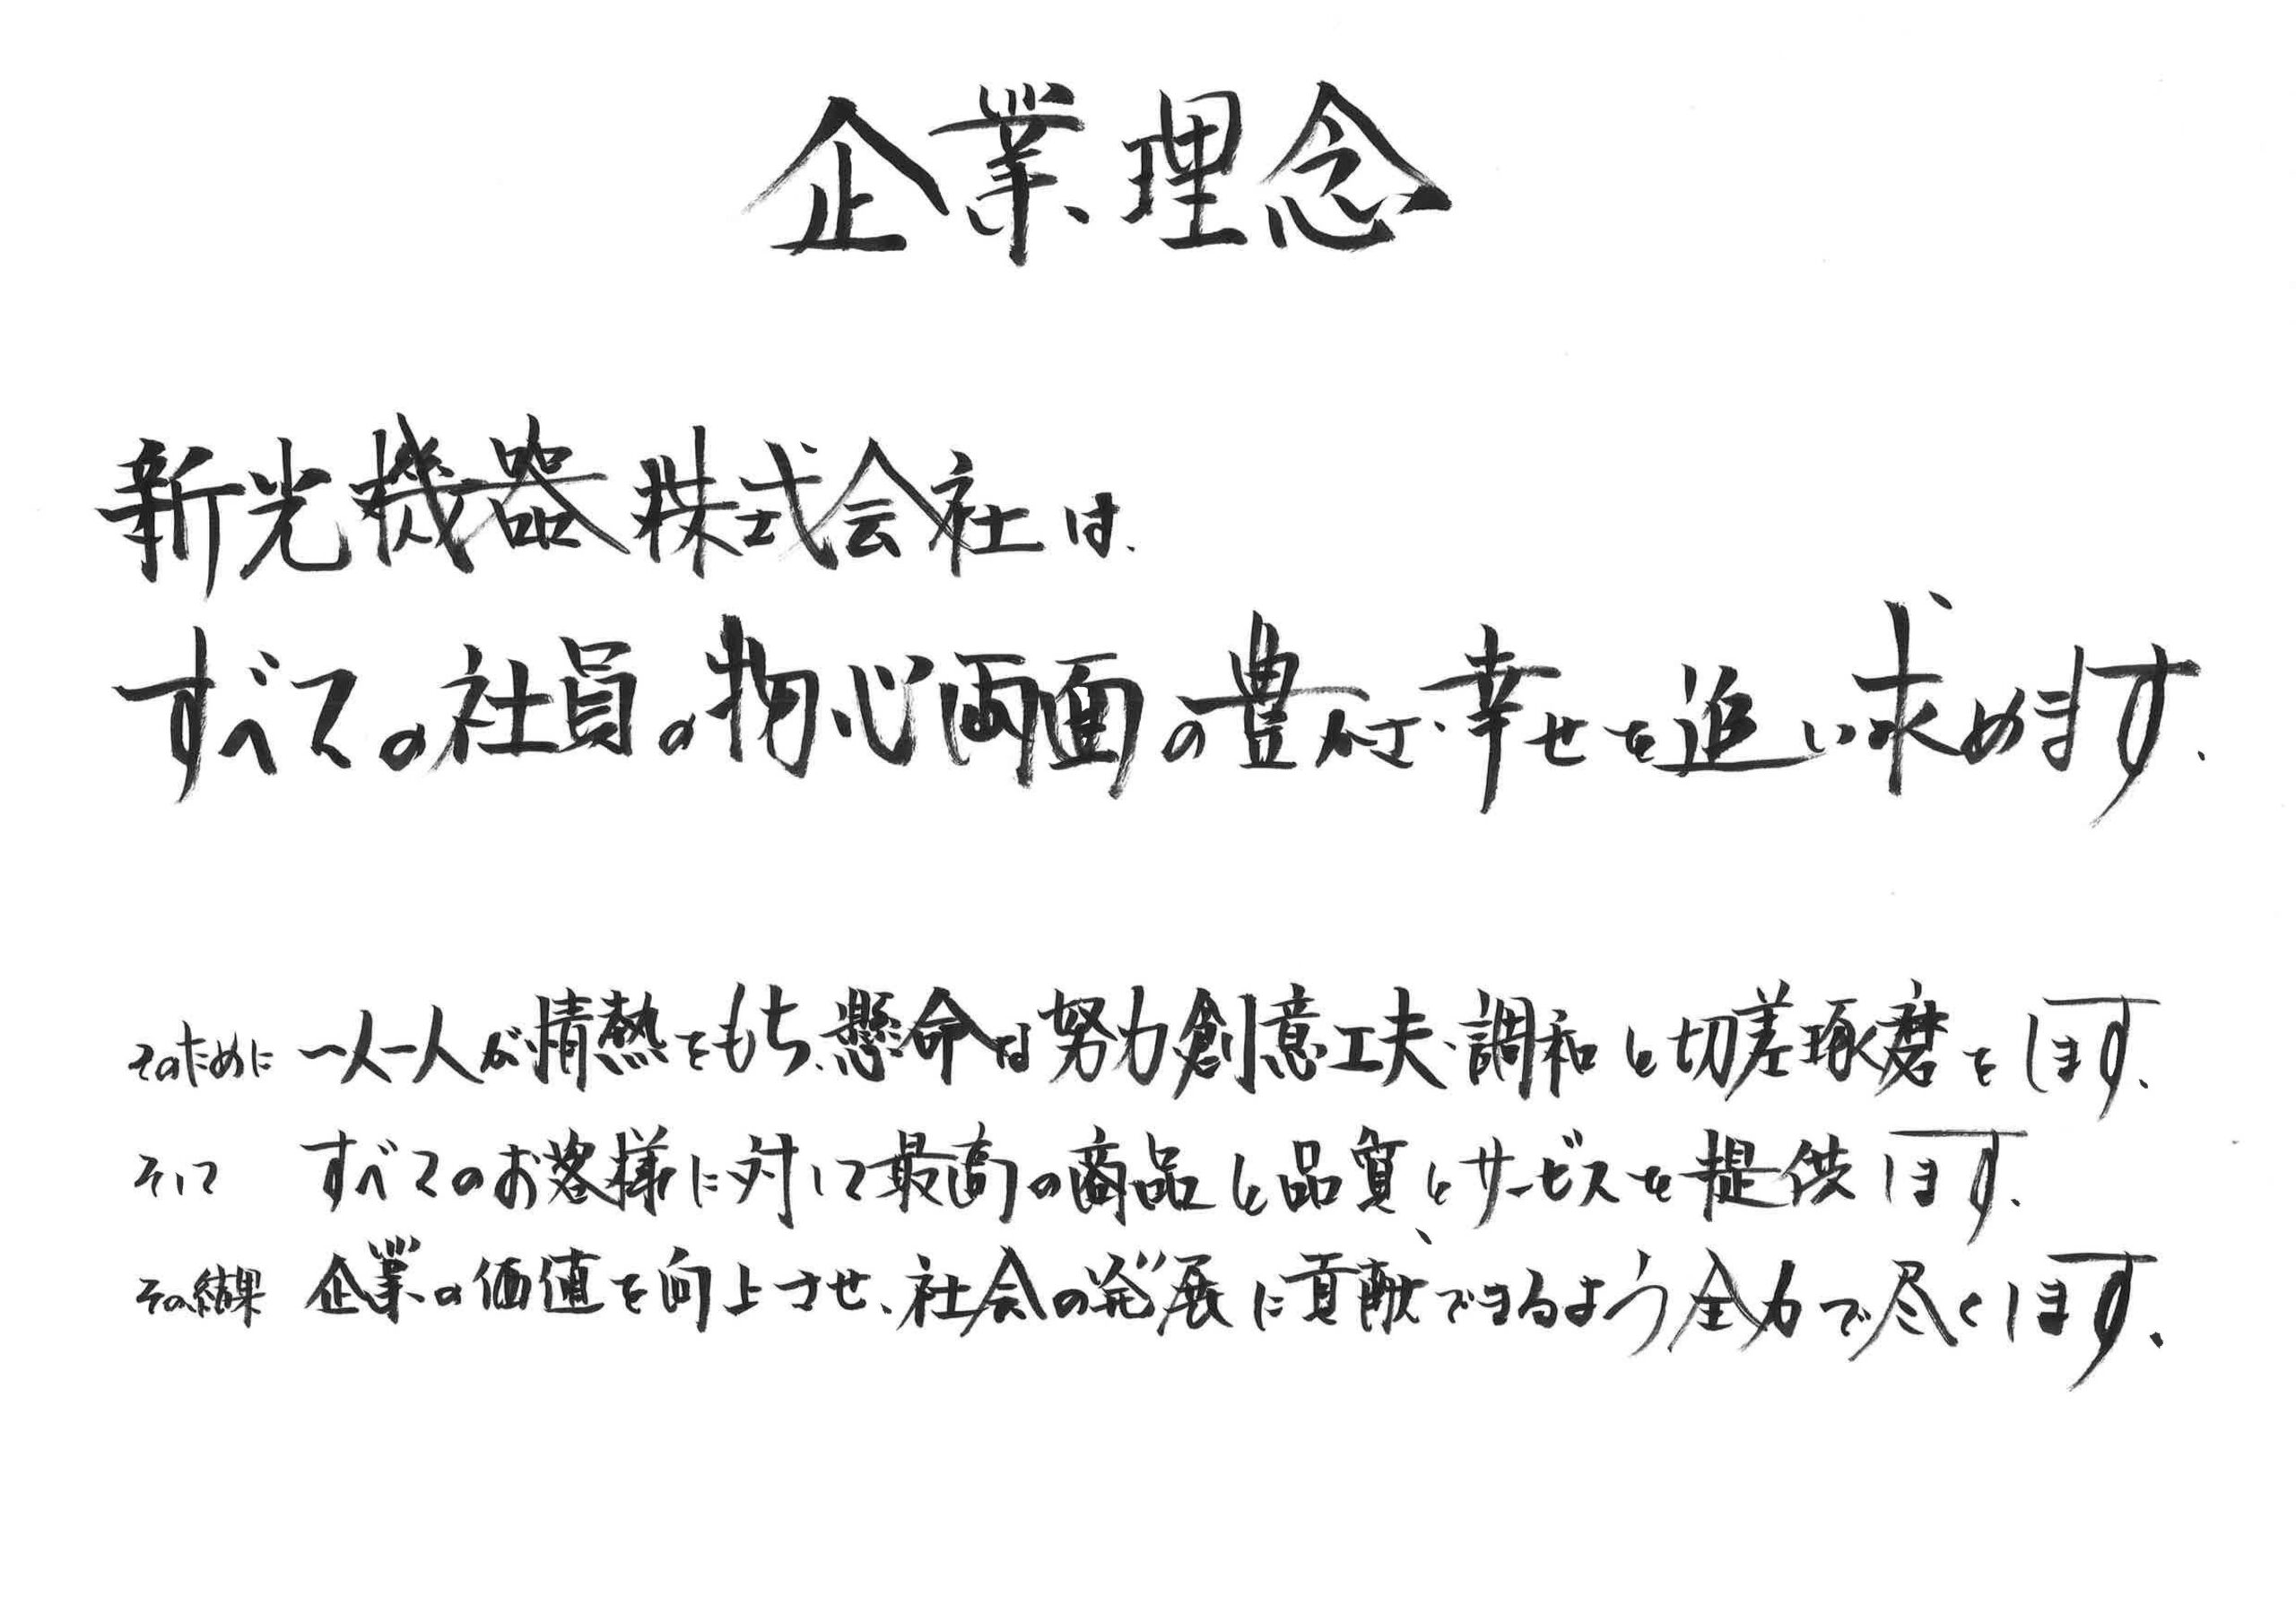 企業理念
新光機器株式会社は、
すべての社員の物心両面の豊かさ・幸せを追い求めます。
そのために 一人一人が情熱をもち、懸命な努力・創意工夫・調和と切差琢磨をします。
そして すべてのお客様に対して最高の商品と品質とサービスを提供します。
その結果 企業の価値を向上させ、社会の発展に貢献できるよう全力で尽くします。